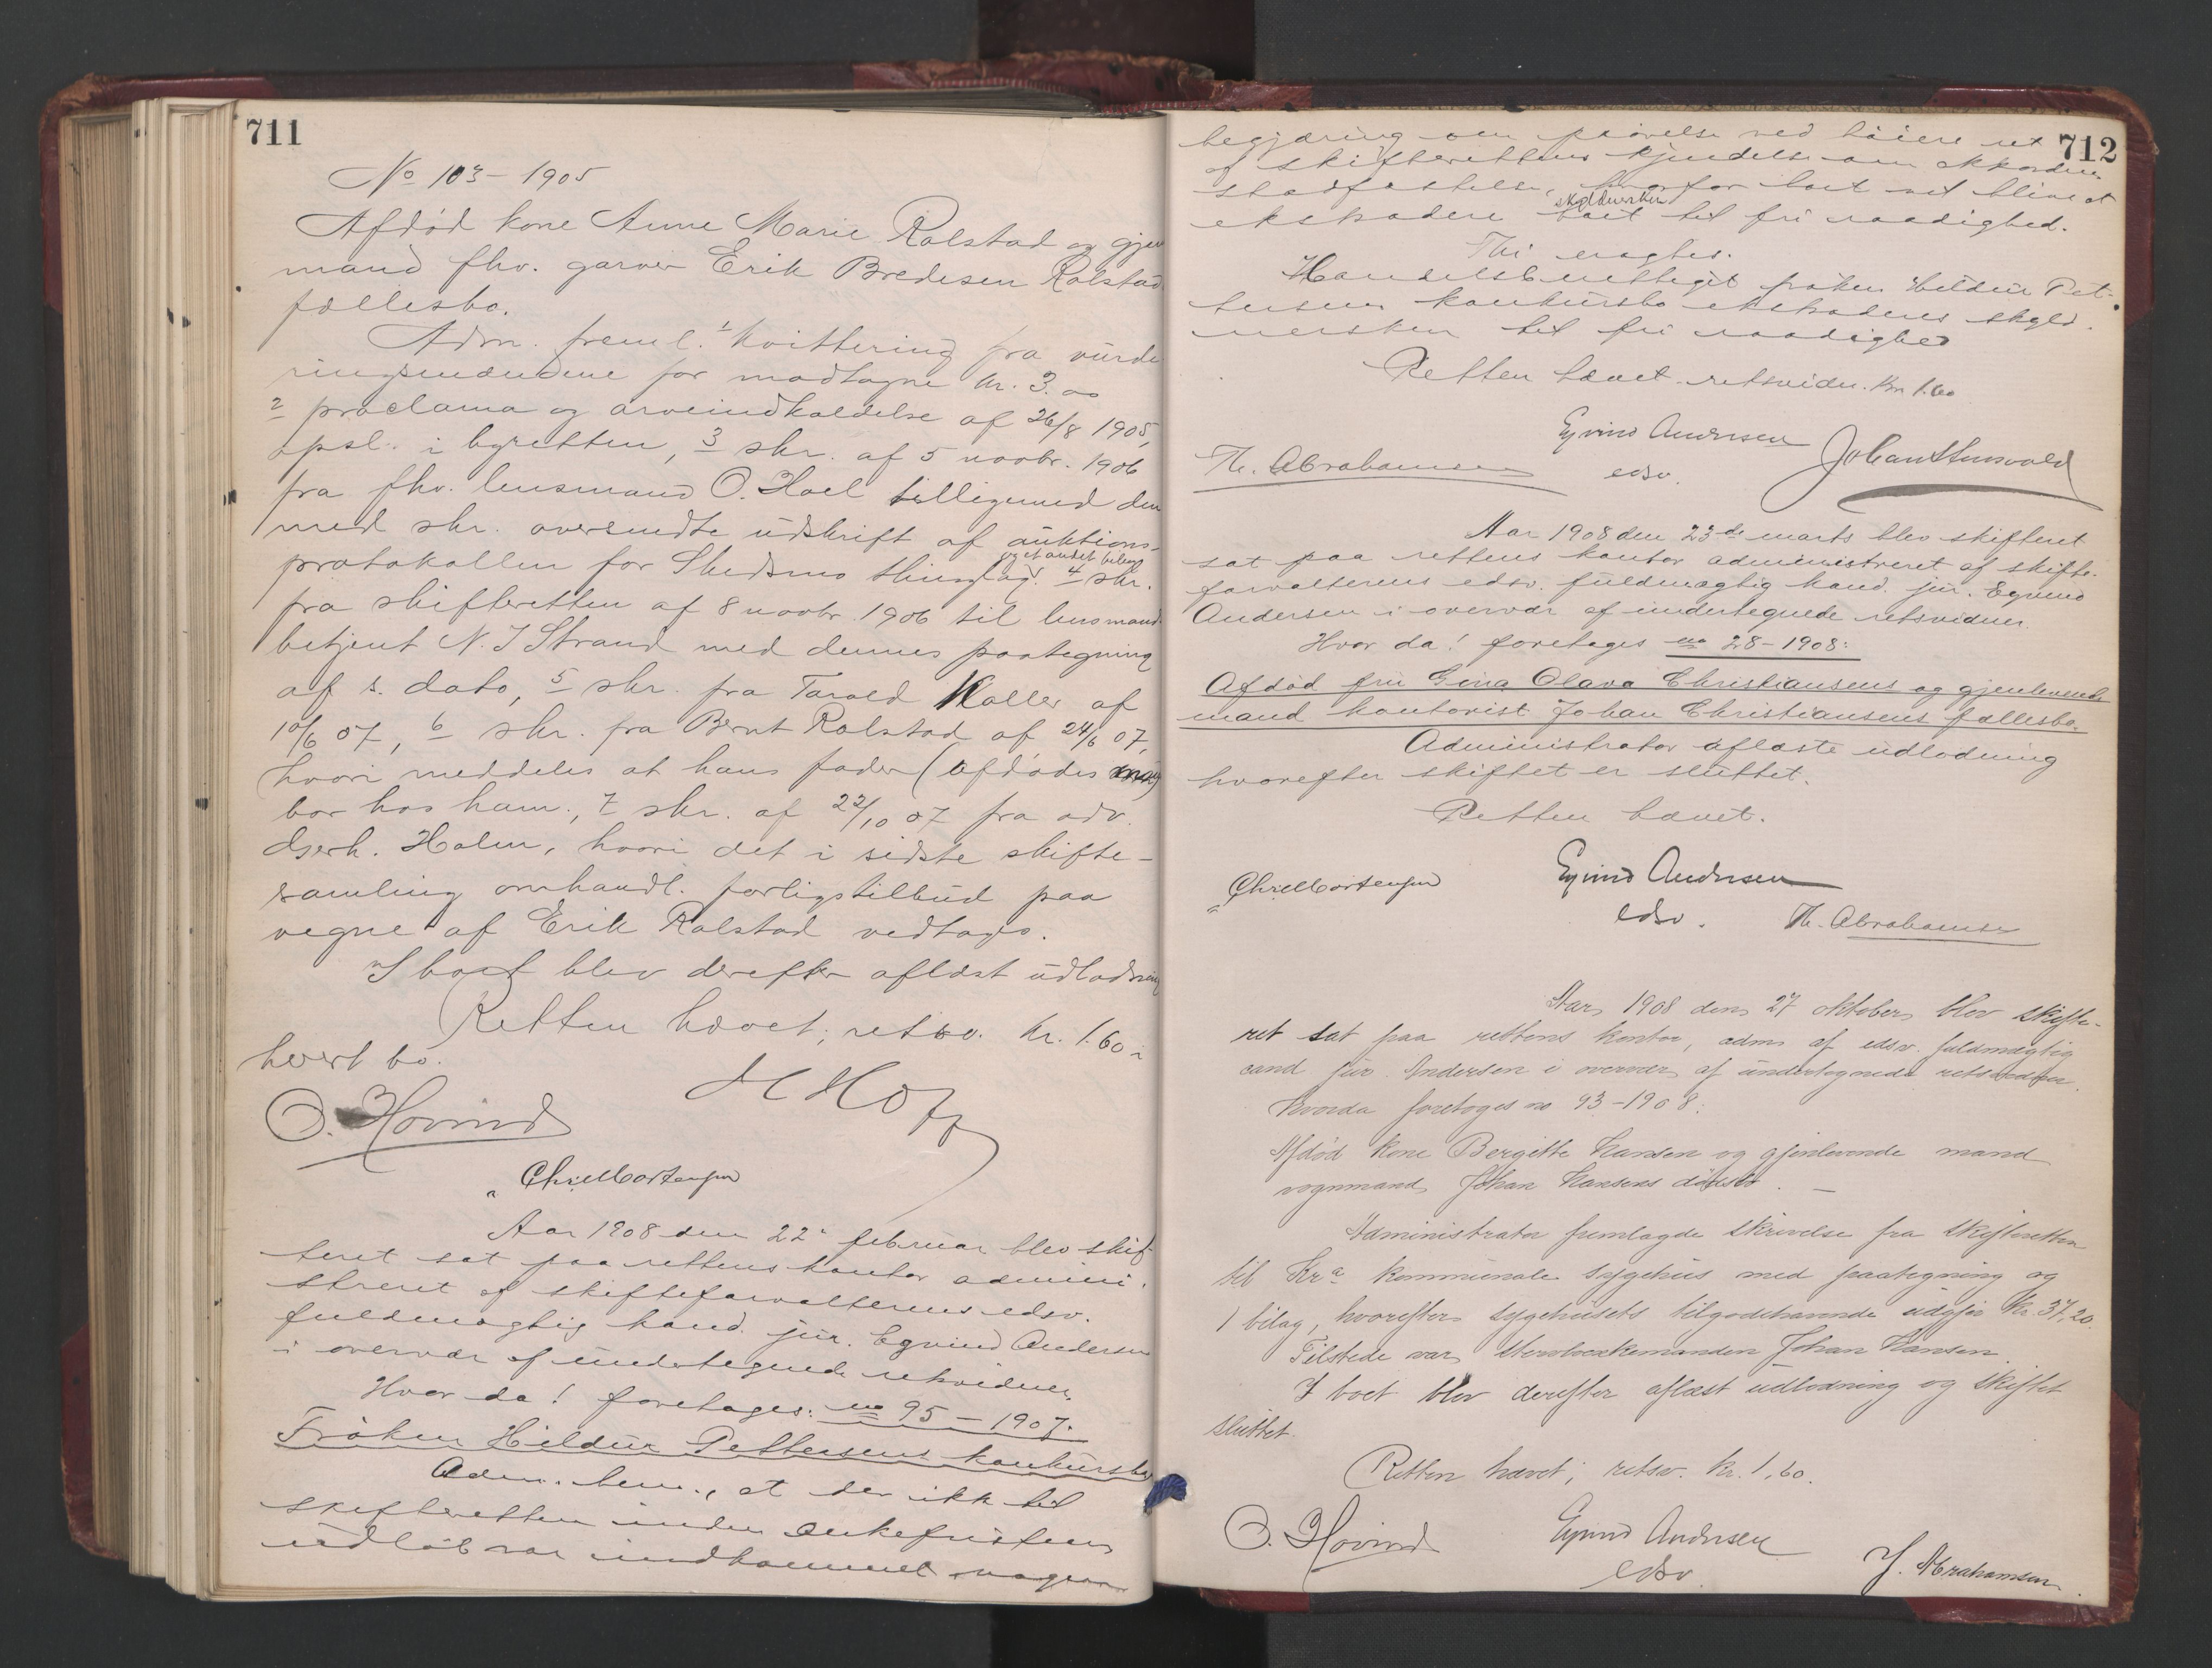 711
No 103-1905
Afdød kone Anne Marie Rolstad og gjen
mand fhv. garver Erik Bredesen Rolstad
fællesbo.
Adm. freml. 1 kvittering fra vurde
ringsmændene for modtagne kr. 3.00
2 proclama og arveindkaldelse af 26/8 1905,
opsl. i byretten, 3 skr. af 5 novbr. 1906
fra fhv. lensmand O. Hoel tilligemed den
med skr. oversendte udskrift af auktions-
og et andet bilag
protokollen for Skedsmo thinglag. 4 skr.
fra skifteretten af 8 novbr. 1906 til lensmand
betjent N. J Strand med dennes paategning
af s. dato, 5 skr. fra Tarald Koller af
10/6 07, 6 skr. fra Bernt Rolstad af 24/6 07,
hvori meddeles at hans fader (afdødes mand)
bor hos ham, 7 skr. af 22/10 07 fra adv.
Gerh. Holm, hvori det i sidste skifte-
samling omhandl. forligstilbud paa
vegne af Erik Rolstad vedtages.
I boet blev derefter aflæst udlodning
Retten hævet; retsv. kr. 1.60 i
hvert bo.
O. Hovind
Chr. Mortensen
Aar 1908 den 22 februar blev skif-
teret sat paa rettens kontor admini-
streret af skifteforvalterens edsv.
fuldmægtig kand. jur. Eyvind Andersen
i overvær af undertegnede retsvidner.
Hvor da! foretages: no 95-1907.
Frøken Hildur Pettersens konkursbo
Adm. bem., at der ikke til
skifteretten inden ankefristens
udløb var indkommet nogen
712
begjæring om prøvelse ved høiere ret
af skifterettens kjendelse om akkordens
stadfæstelse, hvorfor boet vil blive at
skyldnersken
ekstradere boet til fri raadighed.
Thi eragtes:
Handelsberettiget frøken Hildur Pet-
tersens konkursbo ekstraderes skyld-
nersken til fri raadighed
Retten hævet. retsvidn. kr. 1.60
Eyvind Andersen
Th. Abrahamsen
edsv.
Aar 1908 den 23de marts blev skifteret
sat paa rettens kontor administreret af skifte-
forvalterens edsv. fuldmægtig kand. jur. Eyvind
Andersen i overvær af undertegnede retsvidner.
Hvor da! foretages no 28-1908:
Afdød fru Gina Olava Christiansens og gjenlevende
mand kontorist Johan Christiansens fællesbo.
Administrator aflæste udlodning
hvorefter skiftet er sluttet.
Retten hævet.
Chr. Mortensen
Eyvind Andersen
edsv.
Th. Abrahamsen
Aar 1908 den 27 oktober blev skifte-
ret sat paa rettens kontor, adm af edsv. fuldmægtig
cand jur. Andersen i overvær af undertegnede retsvidner.
Hvorda foretoges no 93-1908:
Afdød kone Bergitte Hansen og gjenlevende mand
vognmand Johan Hansens dødsbo. —
Administrator fremlagde skrivelse fra skifteretten
til Kra kommunale sygehus med paategning og
1 bilag, hvorefter sygehusets tilgodehavende udgjør kr. 37,20.
Tilstede var Johan Hansen.
I boet blev derefter aflæst udlodning og skiftet
sluttet.
Retten hævet; retsv. kr. 1,60.
O. Hovind
Eyvind Andersen
edsv.
J. Abrahamsen.